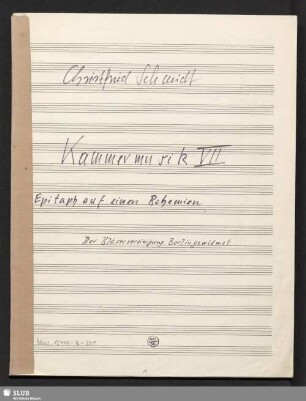 Christfried Schmidt
Kammermusik VII
Epitaph auf einen Bohemien
Der Bläservereinigung Berlin gewidmet
SLUB
Wir führen Wissen.